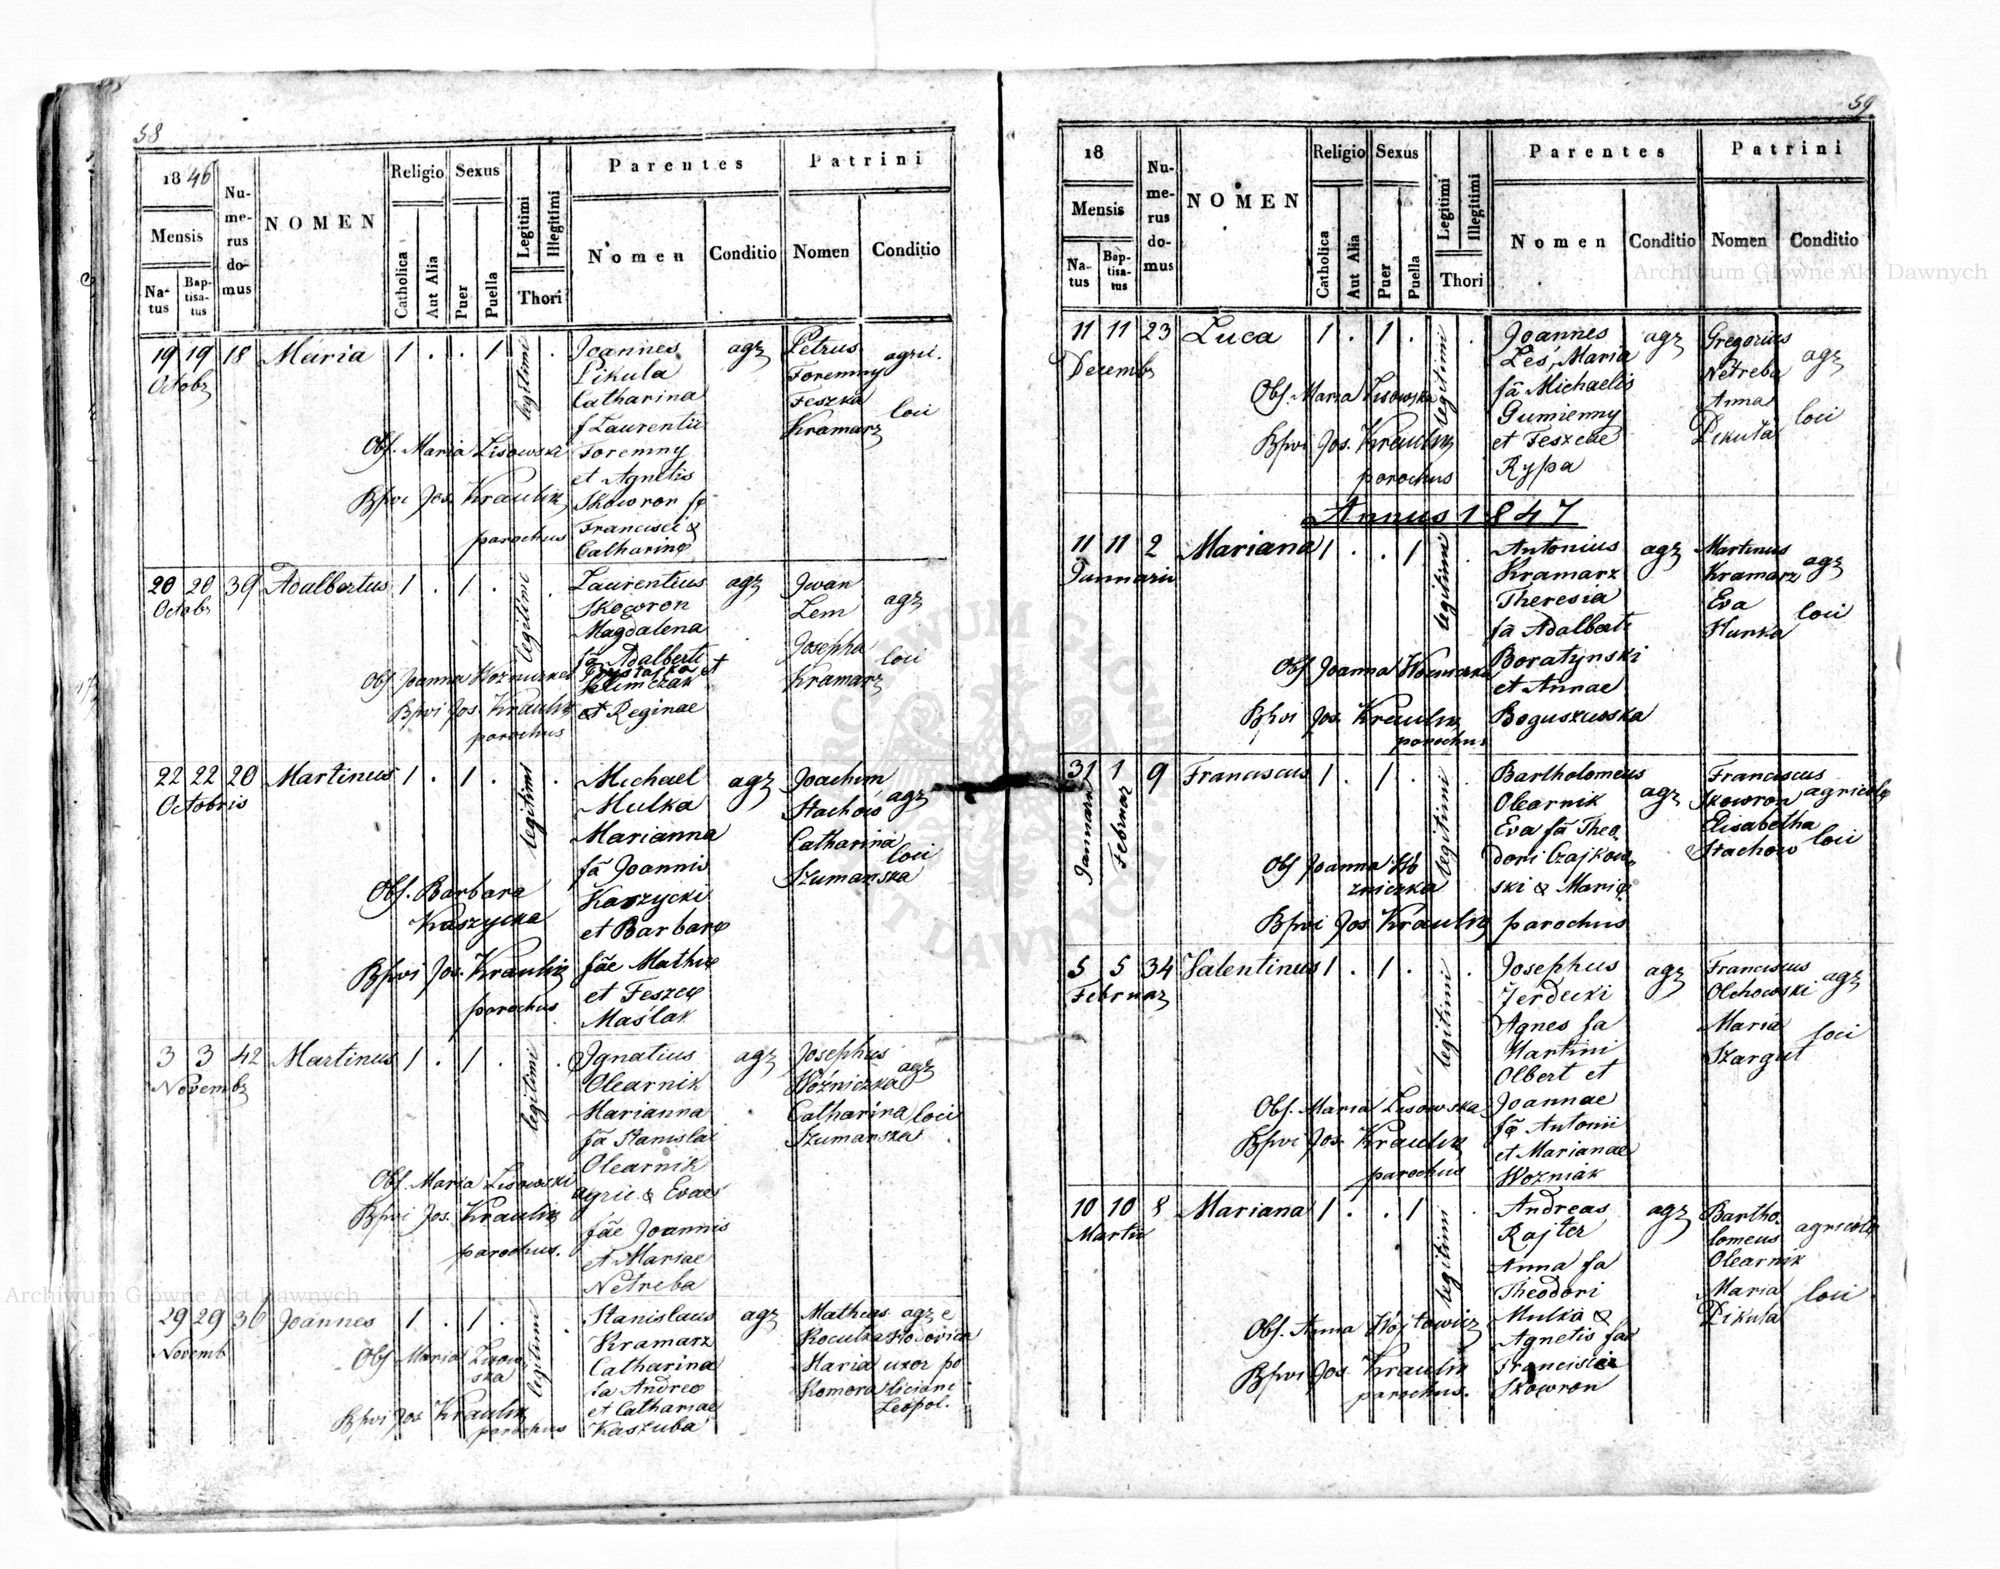 58
1846
Mensis
Natus
Baptisatus
Numerus domus
NOMEN
Religio
Catholica
Aut Alia
Sexus
Puer
Puella
Legitimi
Illegitimi
Thori
Parentes
Nomen
Conditio
Patrini
Nomen
Conditio
19 19 18 Maria 1 . . 1 legitimi .
Octobr
Joannes
Pikula
Catharina
f Laurentii
Foremny
et Agnetis
Skowron fę
Francisci &
Catharinę
agr
Petrus
Foremny
Feszka
Kramarz
agric.
loci
Obs. Maria Lisowski
Bpvi Jos. Kraulik
parochus
20 20 39 Adalbertus 1 . 1 . legitimi .
Octobr
Laurentius
Skowron
Magdalena
fa Adalberti
Klimczak
et Reginae
agr
Jwan
Lem
Josepha
Kramarz
agr
loci
Obs. Joanna
Bpvi Jos. Kraulik
parochus
22 22 20 Martinus 1 . 1 . legitimi .
Octobris
Michael
Mulka
Marianna
fa Joannis
Kaszycki
et Barbarę
fae Mathię
et Feszcę
Maślak
agr
Joachim
Stachow
Catharina
Szumanska
agr
loci
Obs. Barbara
Kaszycka
Bpvi Jos. Kraulik
parochus
3 3 42 Martinus 1 . 1 . legitimi .
Novembr
Ignatius
Olearnik
Marianna
fa Stanislai
Olearnik
agric. & Evae
fae Joannis
et Mariae
Netreba
agr
Josephus
Woźniczka
Catharina
Szumanska
agr
loci
Obs. Maria Lisowski
Bpvi Jos. Kraulik
parochus.
29 29 36 Joannes 1 . 1 . legitimi .
Novemb
Stanislaus
Kramarz
Catharina
fa Andreę
et Cathariae
Kaszuba
agr
Matheus
Kocułka
Maria
Komora
agr e
uxor po
liciani
Leopol.
Obs Maria Lisow
ska
Bpvi Jos Kraulik
parochus
59
18
Mensis
Natus
Baptisatus
Numerus domus
NOMEN
Religio
Catholica
Aut Alia
Sexus
Puer
Puella
Legitimi
Illegitimi
Thori
Parentes
Nomen
Conditio
Patrini
Nomen
Conditio
11 11 23 Luca 1 . 1 . legitimi .
Decembr
Joannes
Leś, Maria
fa Michaelis
Gumienny
et Feszcae
Rypa
agr
Gregorius
Netreba
Anna
Pikuła
agr
loci
Obs. Maria Lisowska
Bpvi Jos. Kraulik
parochus
Annus 1847
11 11 2 Mariana 1 . . 1 legitimi .
Januarii
Antonius
Kramarz
Theresia
fa Adalberti
Boratynski
et Annae
Boguszewska
agr
Martinus
Kramarz
Eva
Hunka
agr
loci
Obs. Joanna
Bpvi Jos. Kraulik
parochus
31 1 9 Franciscus 1 . 1 . legitimi
Januarii
Februar
Bartholomeus
Olearnik
Eva fa Theo
dori Czajkow
ski & Marię
agr
Franciscus
Skowron
Elisabetha
Stachow
agricolę
loci
Obs Joanna Wo
zniczka
Bpvi Jos Kraulik parochus
5 5 34 Valentinus 1 . 1 . legitimi .
Februar
Josephus
Zerdecki
Agnes fa
Martini
Olbert et
Joannae
fę Antonii
et Marianae
Wozniak
agr
Franciscus
Olchowski
Maria
Szargut
agr
loci
Obs. Maria Lisowska
Bpvi Jos. Kraulik
parochus
10 10 8 Mariana 1 . . 1 legitimi .
Martii
Andreas
Rajter
Anna fa
Theodori
Mulka &
Agnetis fae
Francisci
Skowron
agr
Bartho
lomeus
Olearnik
Maria
Pikula
agricolę
loci
Obs. Anna Wojtowicz
Bpvi Jos Kraulik
parochus.
Archiwum Główne Akt Dawnych
Archiwum Główne Akt Dawnych
ARCHIWUM GŁÓWNE AKT DAWNYCH